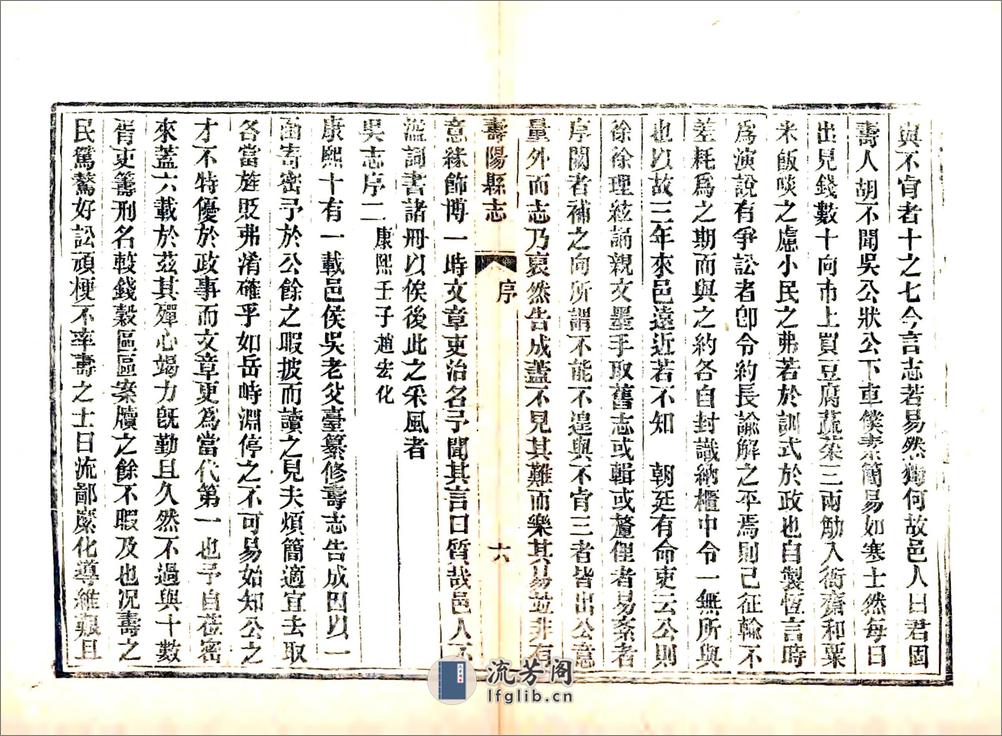 與不肯者十之七今言志若易然獨何故邑人曰君固
壽人胡不聞吳公狀公下車僕素簡易如寒士然每日
出見錢數十向市上買豆腐蔬菜三兩觔入衙齋和粟
米飯啖之慮小民之弗若於訓式於政也自製恆言時
爲演說有爭訟者卽令約長諭解之平焉則已征輸不
差耗爲之期而與之約各自封識納櫃中令一無所與
也以故三年來邑遠近若不知 朝廷有命吏云公則
徐徐理絃誦親文墨手取舊志或輯或釐俚者易紊者
序闕者補之向所謂不能不遑與不肯三者皆出公意
量外而志乃裒然告成蓋不見其難而樂其易並非有
壽陽縣志
序
六
意緣飾博一時文章吏治名予聞其言曰質哉邑人不
溢詞書諸冊以俟後此之采風者
吳志序二 康熙壬子趙宏化
康熙十有一載邑侯吳老父臺纂修壽志告成因以一
函寄密予於公餘之暇披而讀之見夫煩簡適宜去取
各當旌貶弗淆確乎如岳峙淵停之不可易始知公之
才不特優於政事而文章更爲當代第一也予自莅密
來蓋六載於茲其殫心竭力旣勤且久然不過與十數
胥吏籌刑名較錢穀區區案牘之餘不暇及也況壽之
民駑驁好訟頑梗不率壽之士日流鄙縻化導維艱且
流芳閣
lfglib.cn